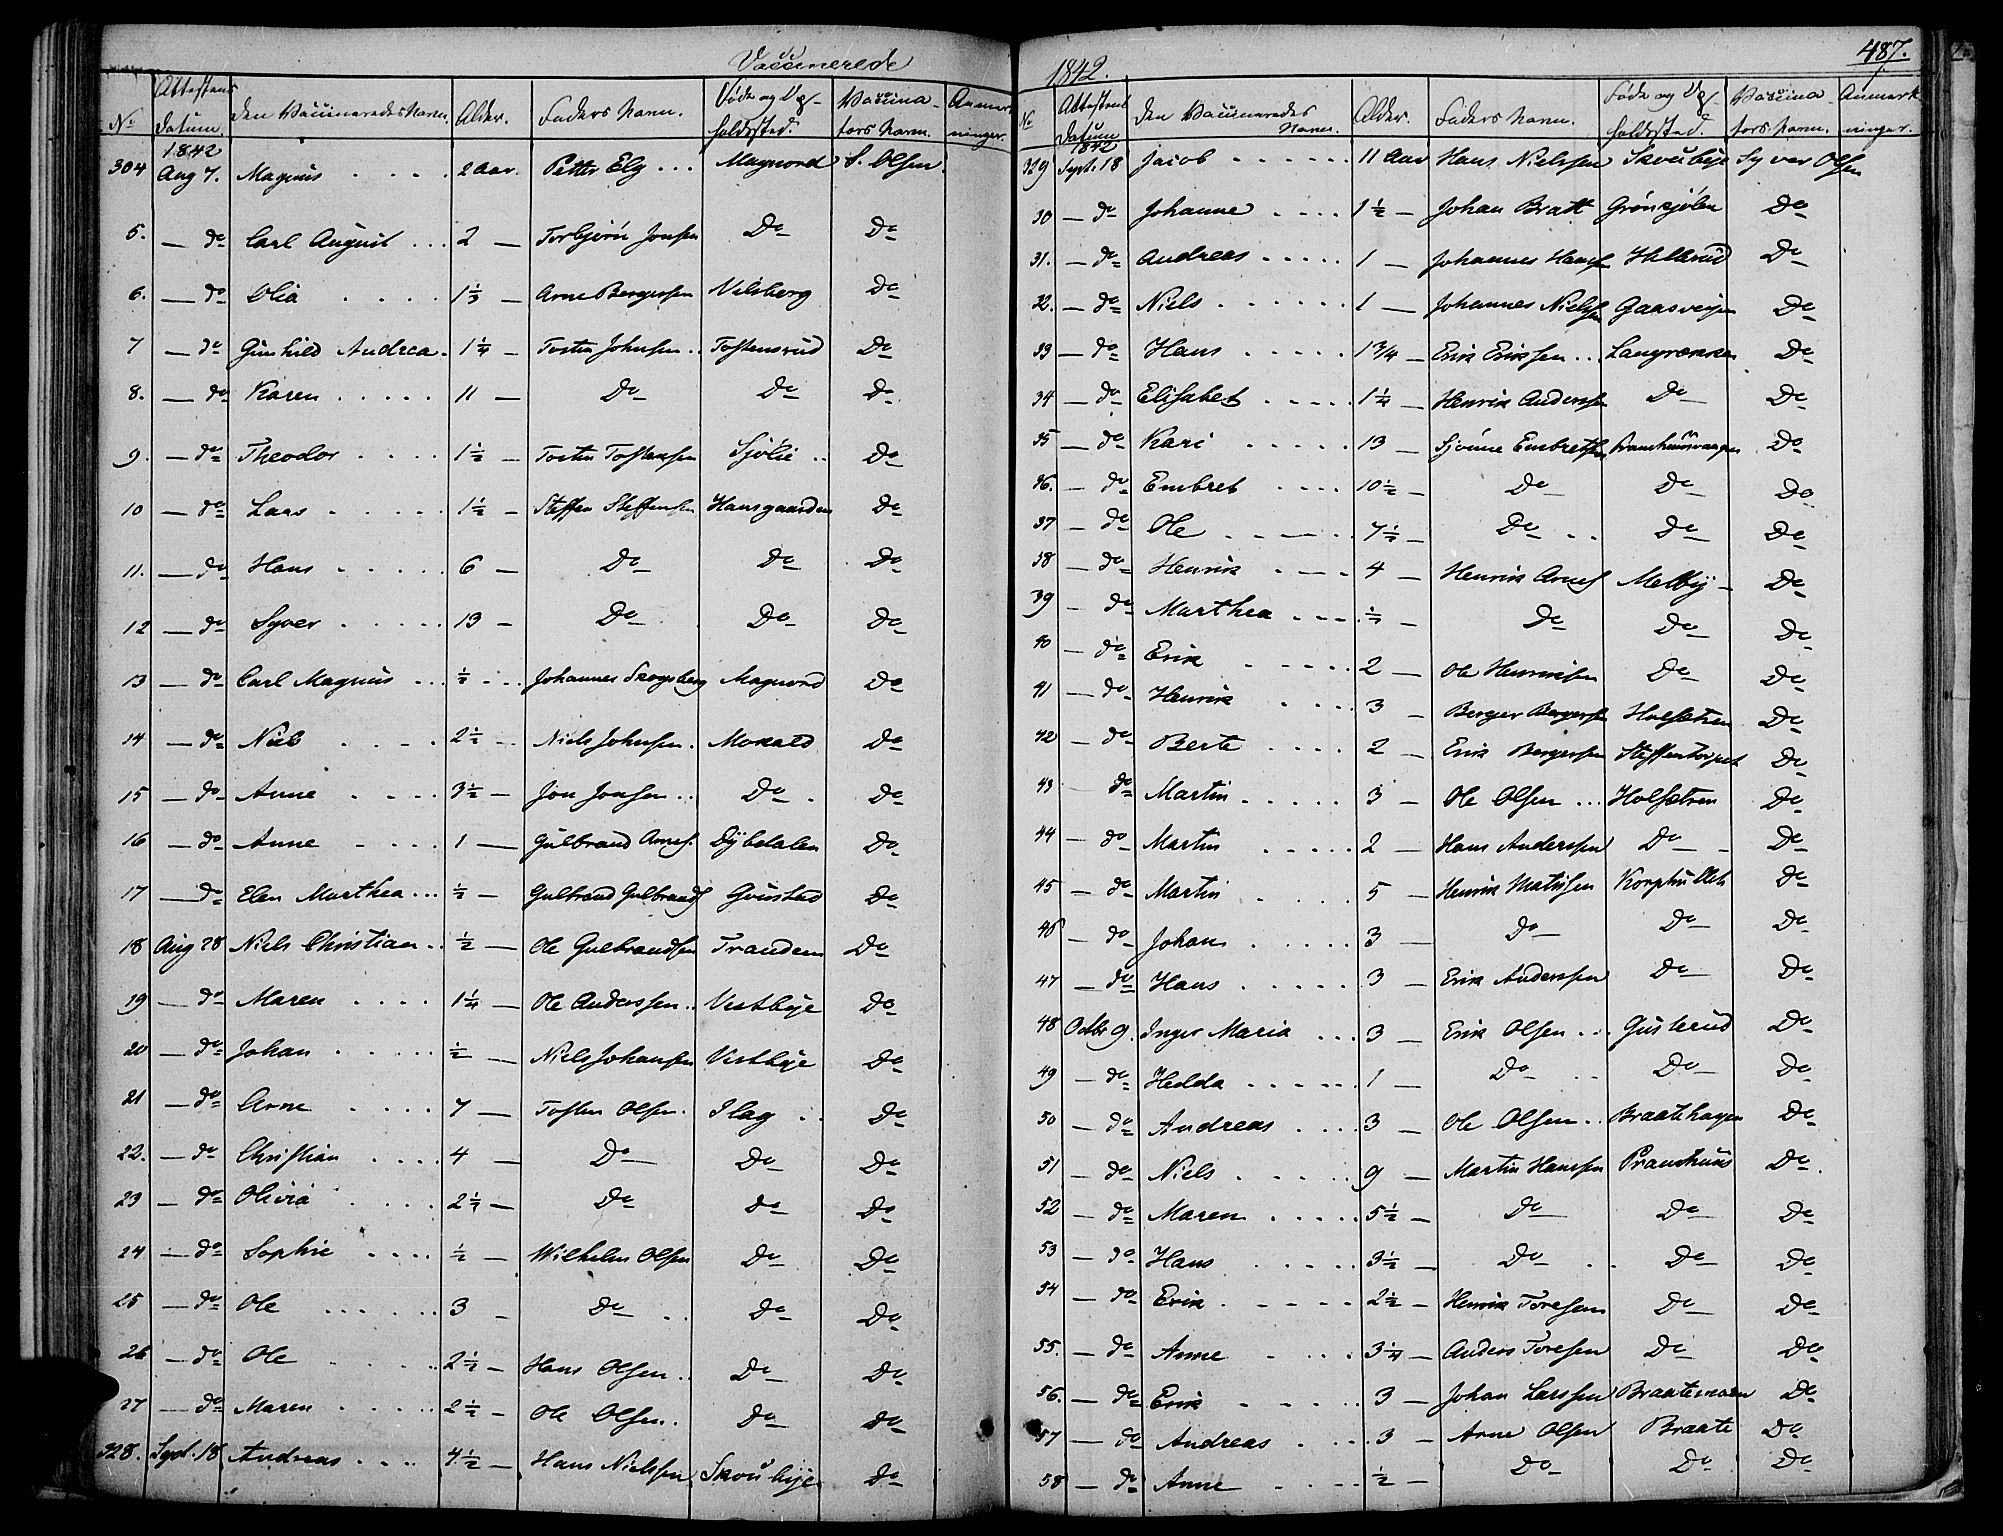 Vaccinerede
№ Attestens Datum. den Vaccineredes Navn. Alder. Faders Navn. Føde og Op-holdssted. Vaccina-tors Navn. Anmærk-ninger.
1842
304 Aug 7. Magnus . . . . 2 Aar. Petter Elg . . . Magnord S. Olsen.
5. — do Carl August . . . 2 — Torbjörn Jonsen Do Do
6. — do Olia . . . . 1 1/3 — Arne Bergersen Vilsberg Do
7 — do Gunhild Andrea . 1 1/4 — Tosten Johnsen . . Tostensrud Do
8. — do Karen . . . . . 11 — Do Do Do
9. — do Theodor . . . . 1 1/2 — Tosten Tostensen Sjölie . . Do
10 — do Lars . . . . . 1 1/2 — Steffen Steffensen Hansgaarden Do
11. — do Hans . . . . . 6 — Do Do Do
12 — do Syver . . . . . 13 — Do Do Do
13 — do Carl Magnus . . . 1/2 . . . Johannes Skogsberg Magnord Do
14 — do Niels . . . . 2 1/2 — Niels Johnsen . Mokald Do
15 — do Anne . . . . 3 1/2 — Jon Jonsen . . Do . Do
16 — do Anne . . . . 1 — Gulbrand Arnes. Dybdalen Do
17 — do Elen Marthea . . . 1/2 — Gulbrand Gulbrands Do
18 Aug 28 Niels Christian . . 1/2 — Ole Gulbrandsen Trandem Do
19 — do Maren . . . . 1 1/4 — Ole Anderssen . . Vestbye Do
20 — do Johan . . . . . 1/2 — Niels Johansen Vestbye Do
21 — do Arne . . . . 7 — Tosten Olsen . Ilag . . Do
22. — do Christian . . . . 4 — Do Do Do
23 — do Olivia . . . . 2 1/2 — Do Do Do
24 — do Sophie . . . . 1/2 — Wilhelm Olsen Do Do
25 — do Ole . . . . . . 3 Do . . Do Do
26 — do Ole . . . . . 2 1/2 — Hans Olsen . . Do Do
27 — do Maren . . . . . 2 1/2 — Ole Olsen . Do Do
328. Sept. 18 Andreas . . . . 4 1/2 — Hans Nielssen Skoubye Do
1842. 487.
№ Attestens Datum den Vaccineredes Navn. Alder. Faders Navn. Føde og Op-holdssted. Vaccina-tors Navn. Anmærk-ninger.
1842
329 Sept. 18 Jacob . . . . . . 11 Aar Hans Nielssen Skoubye Syver Olsen
30 — do Johanne . . . . 1 1/2 — Johan Bratt Grönsjölen Do
31. — do Andreas . . . . . 1 — Johannes Hans Hillerud Do
32. — do Niels . . . . . . 1 — Johannes Nielssen Gaasveien Do
33 — do Hans . . . . . 1 3/4 — Erik Erikssen . . Langrækken Do
34 — do Elisabet . . . . 1 1/4 — Henrik Anderssen Do Do
35 — do Kari . . . . . 13 — Embretsen Do
36. — do Embret . . . . 10 1/2 — Do Do Do
37 — do Ole . . . . . 7 1/2 — Do . . Do Do
38 — do Henrik . . . . 4 — Henrik Arnes Melby — Do
39 — do Marthea . . . . 1/2 — Do Do Do
40 — do Erik . . . . . 2 — Ole Henriksen Do Do
41 — do Henrik . . . . 3 — Berger Bergersen Holsætren Do
42 — do Berte . . . . 2 — Erik Bergersen Steffentorpet Do
43 do Martin . . . . . 3 — Ole Olsen . . . Holsætren Do
44 — do Martin . . . . . 2 — Hans Anderssen Do — Do
45 — do Martin . . . . 5 — Henrik Matissen Korphullet Do
46 — do Johan . . . . . 3 — Do Do Do
47 — do Hans . . . . . 3 Erik Anderssen Do Do
48 Octbr 9. Inger Maria . . . 3 Erik Olsen . . Gusterud Do
49 — do Hedda . . . . . 1 — Do . . Do Do
50 — do Andreas . . . . 3 — Ole Olsen . . Braatehagen Do
51 — do Niels . . . . . 9 — Martin Hanssen Pramhuus Do .
52 — do Maren . . . . 5 1/2 — Do Do Do
53 — do Hans . . . . . 3 1/2 — Do . . Do Do
54 — do Erik . . . . . 2 1/2 — Henrik Toresen Do Do
55. — do Anne . . . . 3 1/4 — Anders Toresen Do Do
56. — do Erik . . . . . 3 — Johan Larssen Braatemoen Do
57 — do Andreas . . . . 3 — Arne Olsen Braate Do
58 — do Anne . . . . . 1/2 — Do Do Do